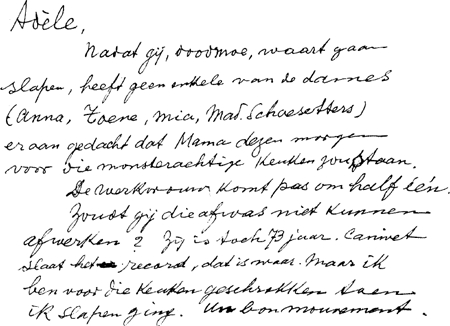 Adèle,
Nadat gij, doodmoe, waart gaan
slapen, heeft geen enkele van de dames
(Anna, Zoene, Mia, Mad. Schoesetters)
er aan gedacht dat Mama dezen morgen
voor die monsterachtige keuken zou staan.
De werkvrouw komt pas om half één.
Zoudt gij die afwas niet kunnen
afwerken? Zij is toch 73 jaar. Carinet
slaat het record, dat is waar. Maar ik
ben voor die keuken geschrokken toen
ik slapen ging. Un bon mouvement.